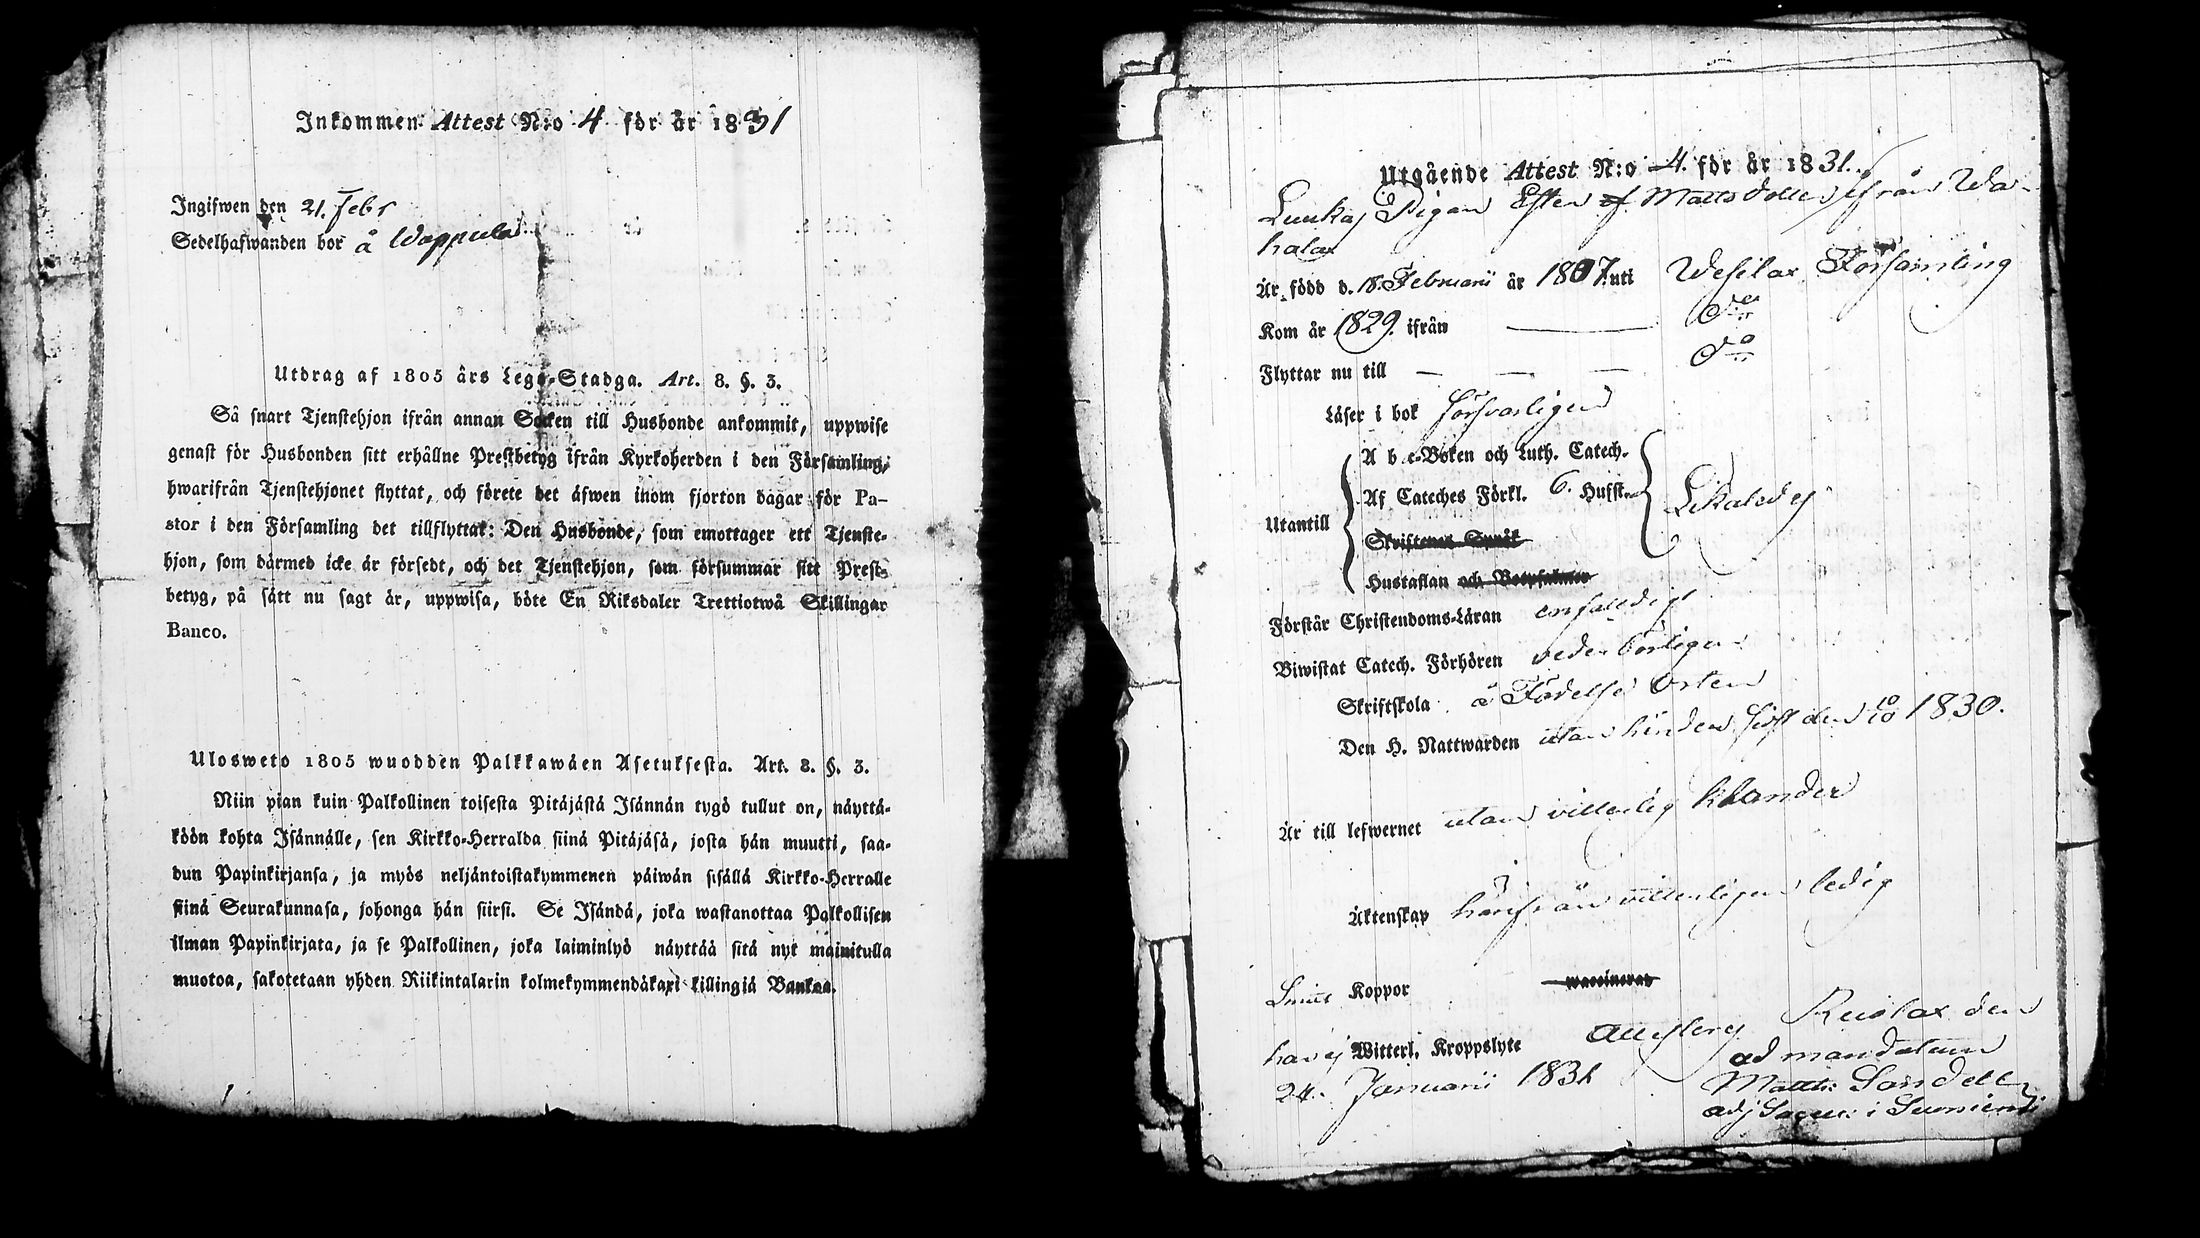 Inkommen Attest N:o 4 för år 1831
Ingifwen den 21. Febr
Sedelhafwanden bor å Wappula
Utdrag af 1805 års Lego-Stadga. Art. 8. §. 3.
Så snart Tjenstehjon ifrån annan Socken till Husbonde ankommit, uppwise
genast för Husbonden sitt erhållne Prestbetyg ifrån Kyrkoherden i den Församling,
hwarifrån Tjenstehjonet flyttat, och förete det äfwen inom fjorton dagar för Pa-
stor i den Församling det tillflyttat: Den Husbonde, som emottager ett Tjenste-
hjon, som därmed icke är försedt, och det Tjenstehjon, som försummar sitt Prest-
betyg, på sätt nu sagt är, uppwisa, böte En Riksdaler Trettiotwå Skillingar
Banco.
Ulosweto 1805 wuodden Palkkawäen Asetuksesta. Art. 8. §. 3.
Niin pian kuin Palkollinen toisesta Pitäjästä Isännän tygö tullut on, näyttä-
köön kohta Isännälle, sen Kirkko-Herralda siinä Pitäjäsä, josta hän muutti, saa-
dun Papinkirjansa, ja myös neljäntoistakymmenen päiwän sisällä Kirkko-Herralle
siinä Seurakunnasa, johonga hän siirsi. Se Isändä, joka wastanottaa Palkollisen
ilman Papinkirjata, ja se Palkollinen, joka laiminlyö näyttää sitä nyt mainitulla
muotoa, sakotetaan yhden Riikintalarin kolmekymmendäkaxi killingiä Bankoa.
Utgående Attest N:o 4. för år 1831.
Pigan Ester Matts dotter ifrån Wa-
halax
Är född d. 18. Februarii år 1807. uti Wesilax Församling
Kom år 1829. ifrån — do
Flyttar nu till — — — do
Läser i bok försvarligen
A b c-Boken och Luth. Catech.
Af Cateches Förkl. 6. Hufst.
Utantill Likaledes
Skriftenes Språk
Hustaflan och Botpsalmer
Förstår Christendoms-Läran enfaldigt
Biwistat Catech. Förhören vederbörligen
Skriftskola å Födelse Orten
Den H. Nattwarden utan hinder sist den 10/10 1830.
Är till lefwernet utan vitterlig klander
Äktenskap härifrån vitterligen ledig
Koppor waccinerad
har ej Witterl. Kroppslyte den
24. Januarii 1831 ad mandatum
Matth: Sandell
adj Sacell: i